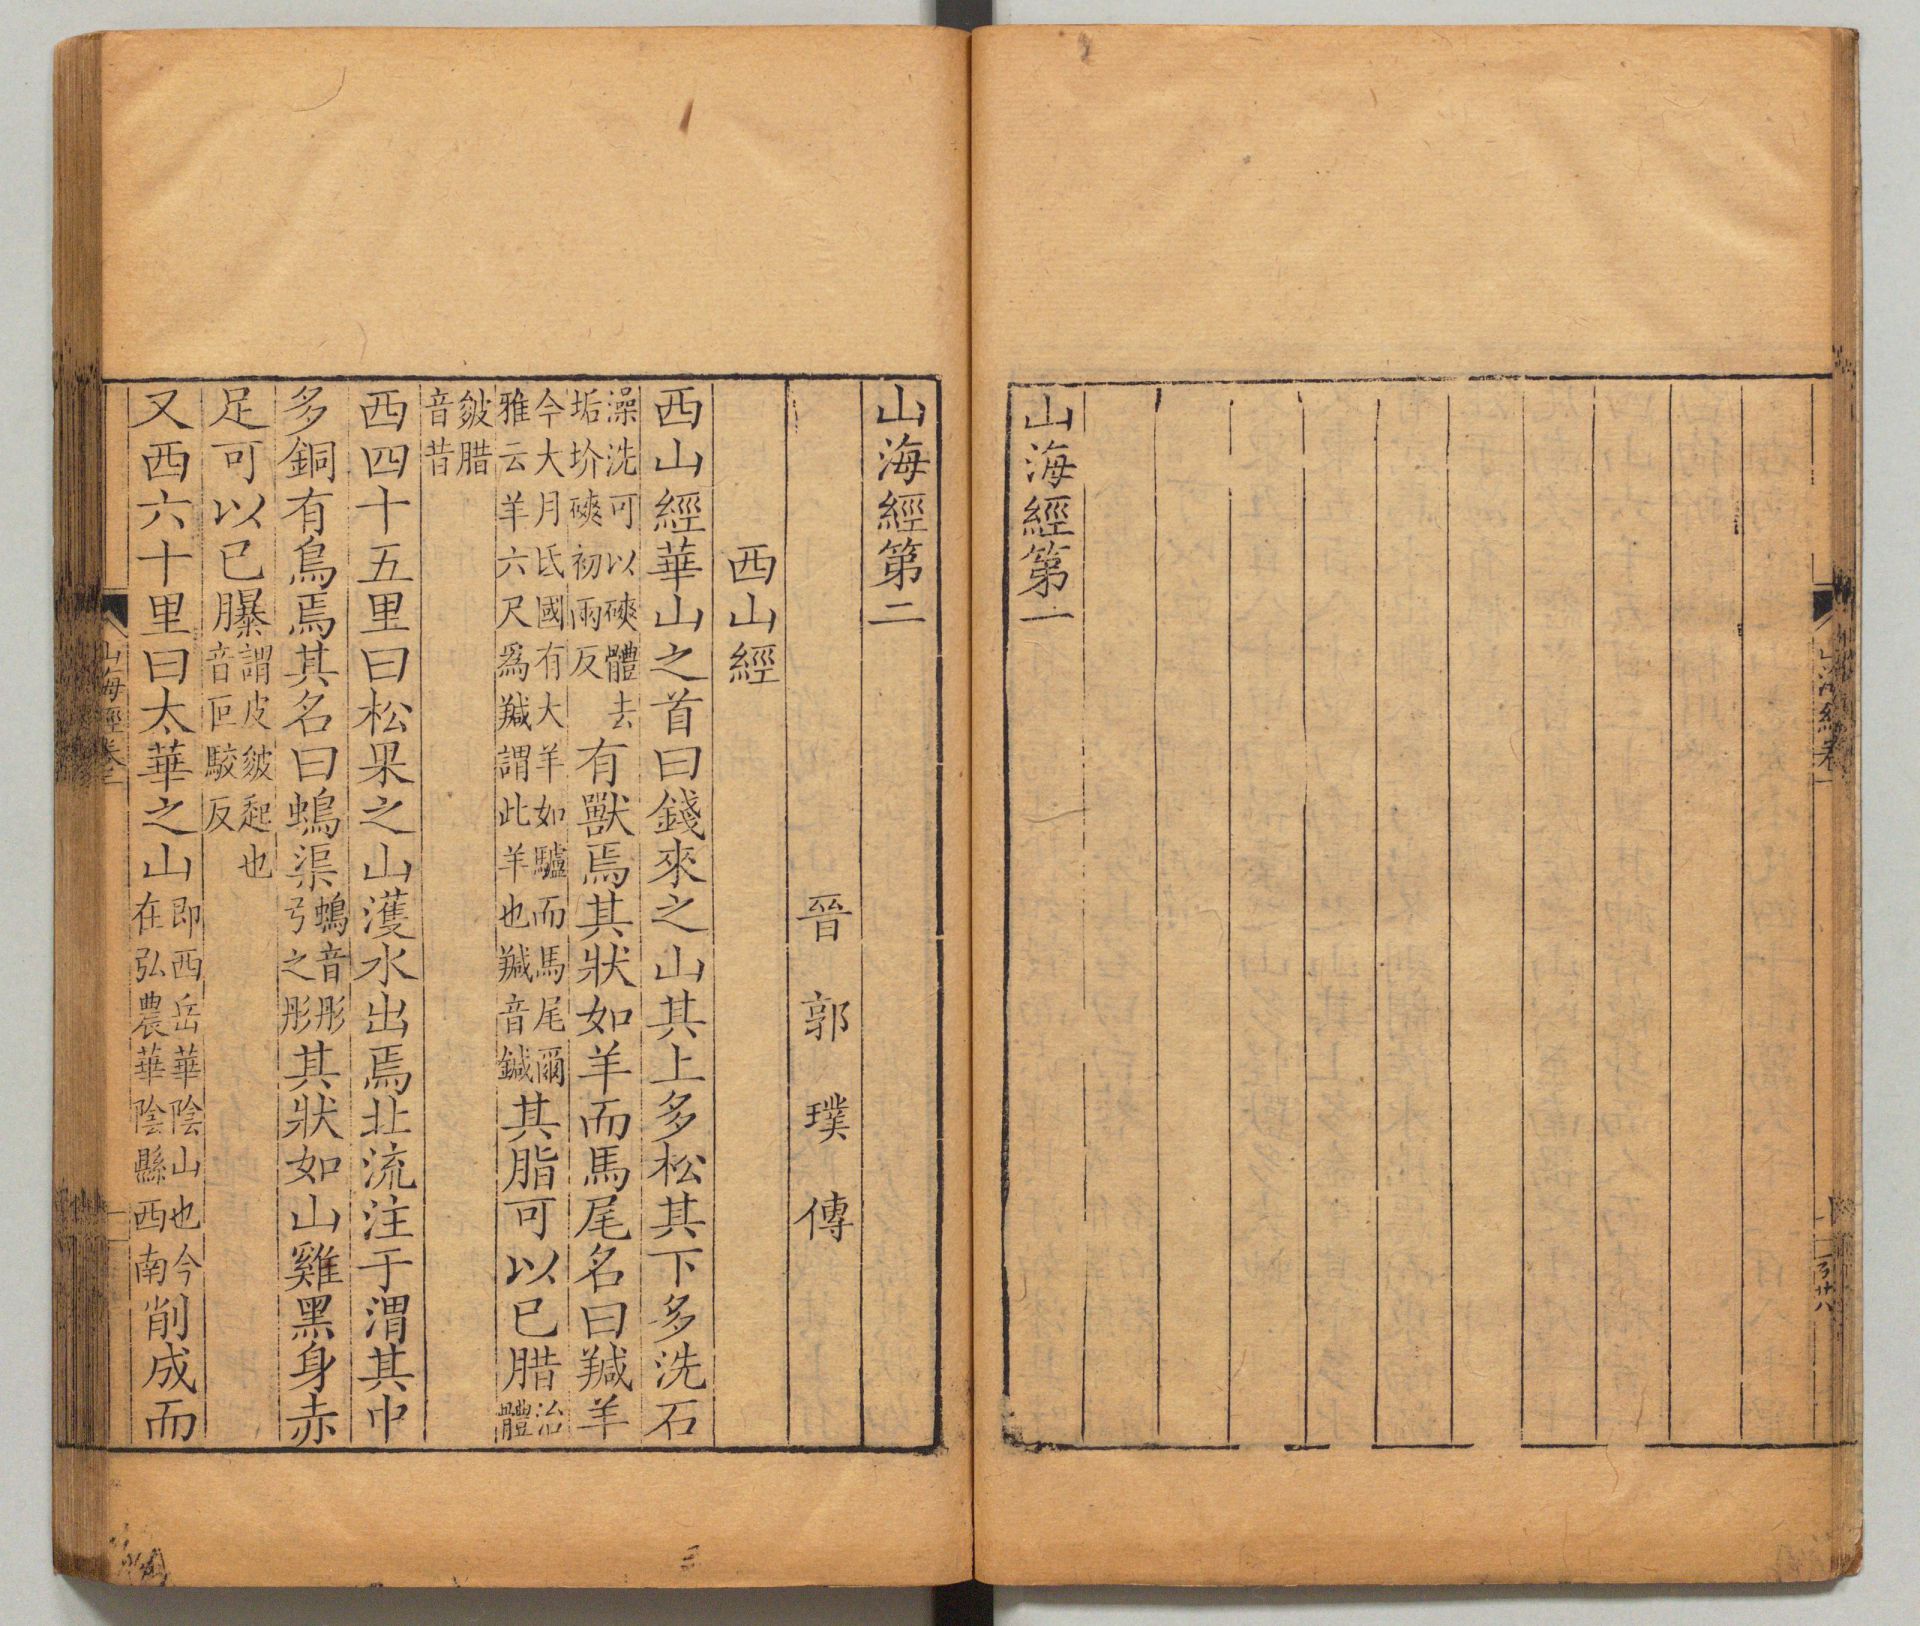 山海經第一
山海經第二
晉郭璞傳
西山經
西山經華山之首曰錢來之山其上多松其下多洗石
澡洗可以磢體去
垢圿磢初兩反
有獸焉其狀如羊而馬尾名曰羬羊
今大月氐國有大羊如驢而馬尾爾
雅云羊六尺爲羬謂此羊也羬音鍼
其脂可以已腊
治
體
皴腊
音昔
西四十五里曰松果之山濩水出焉北流注于渭其中
多銅有鳥焉其名曰䳋渠
䳋音彤
弓之彤
其狀如山雞黑身赤
足可以已㿺
謂皮皴起也
音叵駮反
又西六十里曰太華之山
即西岳華陰山也今
在弘農華陰縣西南
削成而
山海經卷二